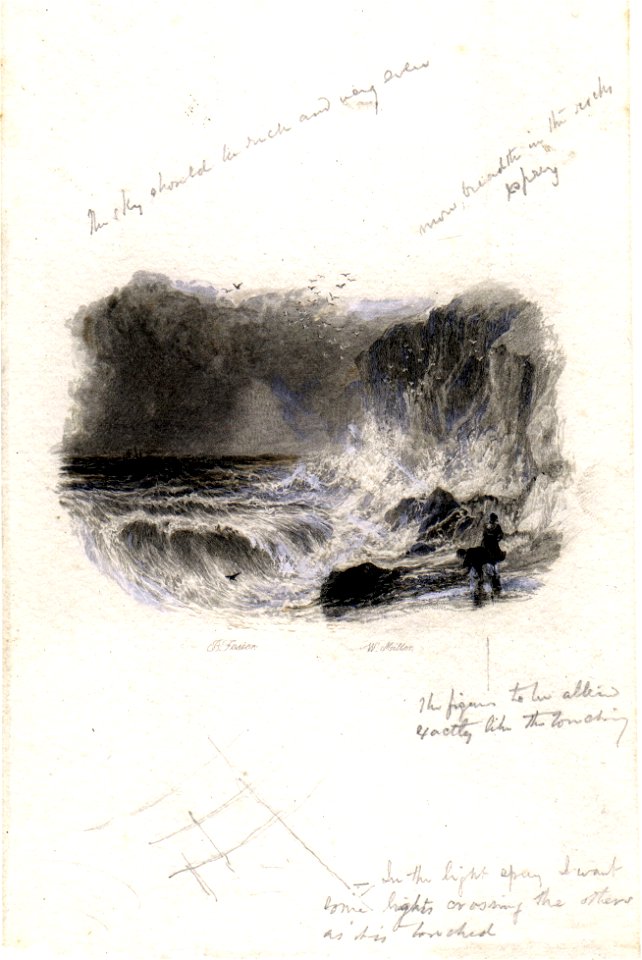 The sky should be rich and very even
more breadth in the rocks
& spray
B. Foster
W. Miller
The figures to be altered
exactly like the touching
– In the light spray I want
some lights crossing the others
as it is touched